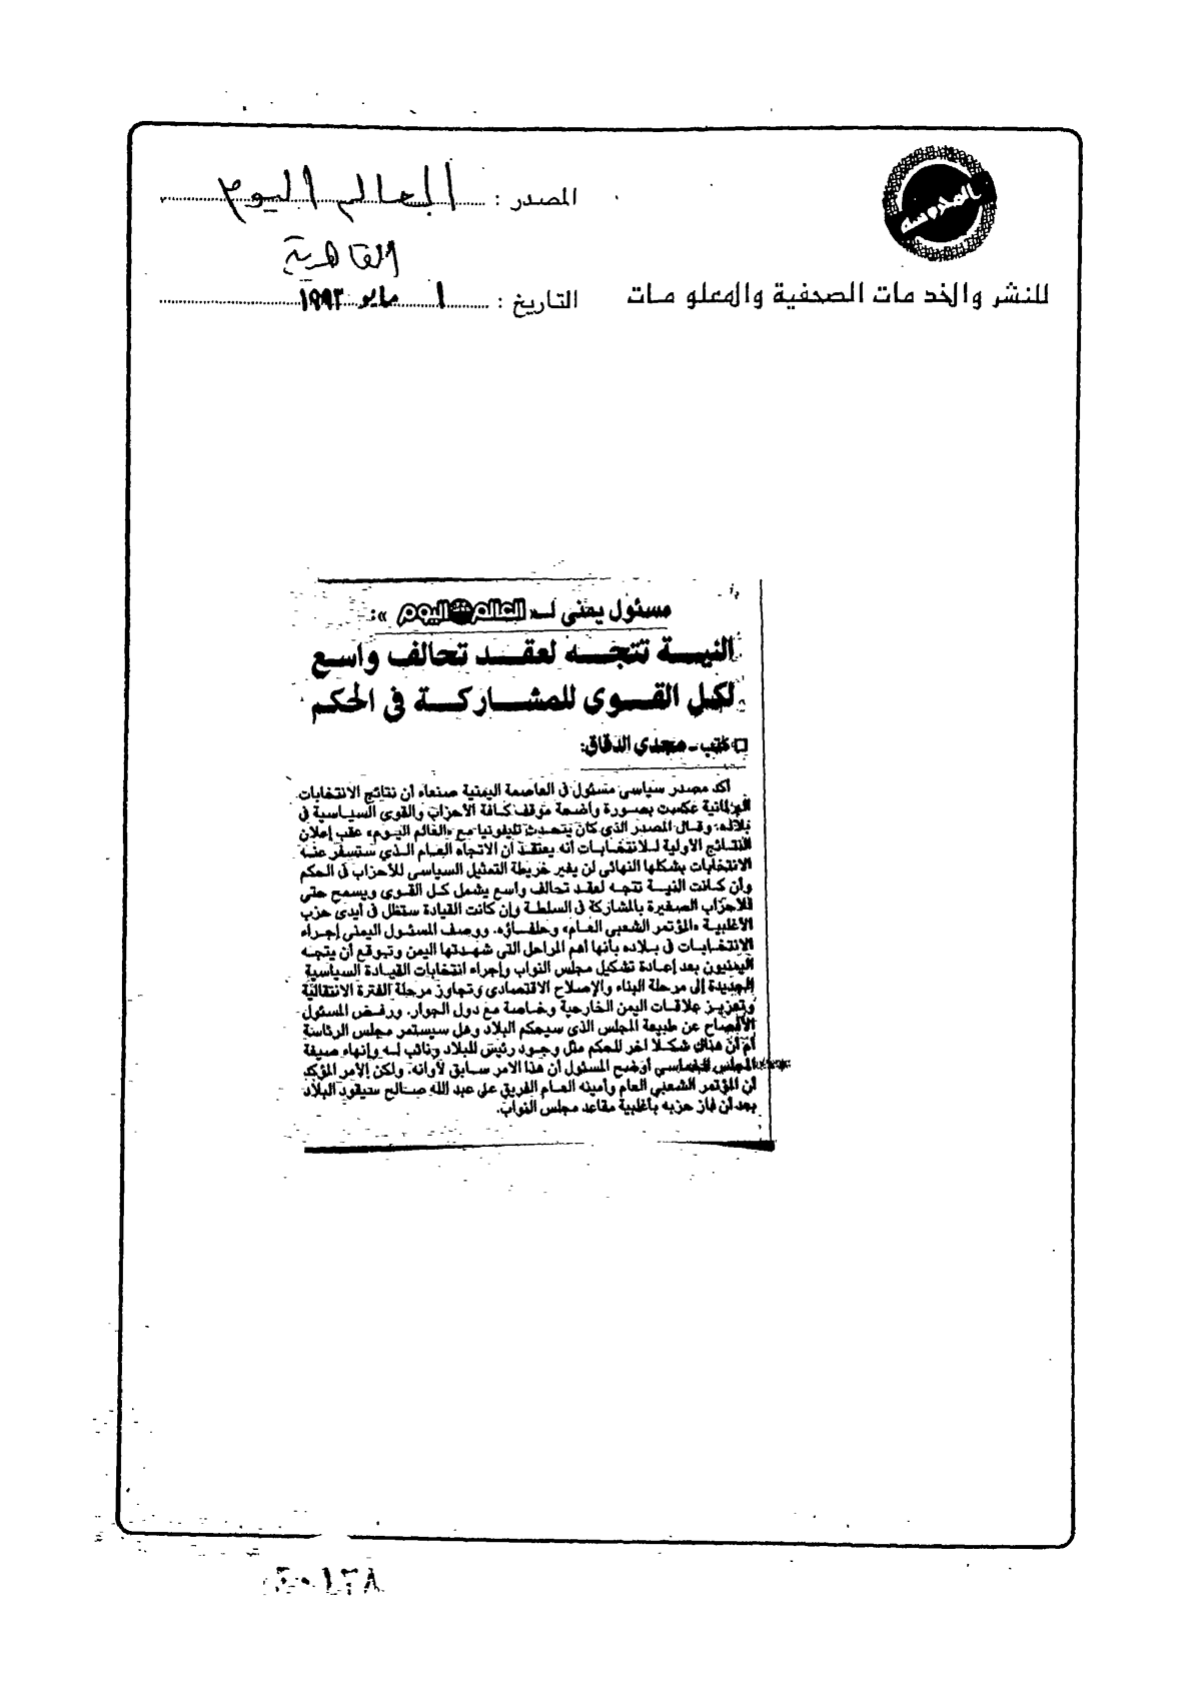 المصدر : العالم اليوم
القاهرية
التاريخ : ١ مايو ١٩٩٣
للنشر والخدمات الصحفية والمعلومات
مسئول يمنى لـ« العالم اليوم »:
النية تتجه لعقد تحالف واسع
لكل القوى للمشاركة فى الحكم
كتب ـ مجدى الدقاق:
أكد مصدر سياسى مسئول فى العاصمة اليمنية صنعاء أن نتائج الانتخابات
البرلمانية عكست بصورة واضحة موقف كافة الأحزاب والقوى السياسية فى
بلاده. وقال المصدر الذى كان يتحدث تليفونيا مع «العالم اليوم» عقب إعلان
النتائج الأولية للانتخابات أنه يعتقد أن الاتجاه العام الذى ستسفر عنه
الانتخابات بشكلها النهائى لن يغير خريطة التمثيل السياسى للأحزاب فى الحكم
وأن كانت النية تتجه لعقد تحالف واسع يشمل كل القوى ويسمح حتى
للأحزاب الصغيرة بالمشاركة فى السلطة وإن كانت القيادة ستظل فى أيدى حزب
الأغلبية «المؤتمر الشعبى العام» وحلفاؤه. ووصف المسئول اليمنى إجراء
الانتخابات فى بلاده بأنها أهم المراحل التى شهدتها اليمن وتوقع أن يتجه
اليمنيون بعد إعادة تشكيل مجلس النواب وإجراء انتخابات القيادة السياسية
الجديدة إلى مرحلة البناء والإصلاح الاقتصادى وتجاوز مرحلة الفترة الانتقالية
وتعزيز علاقات اليمن الخارجية وخاصة مع دول الجوار. ورفض المسئول
الأفصاح عن طبيعة المجلس الذى سيحكم البلاد وهل سيستمر مجلس الرئاسة
أم أن هناك شكلا آخر للحكم مثل وجود رئيس للبلاد ونائب له وإنهاء صيغة
المجلس الخماسى أوضح المسئول أن هذا الامر سابق لأوانه. ولكن الأمر المؤكد
أن المؤتمر الشعبى العام وأمينه العام الفريق على عبد الله صالح سيقود البلاد
بعد أن فاز حزبه بأغلبية مقاعد مجلس النواب.